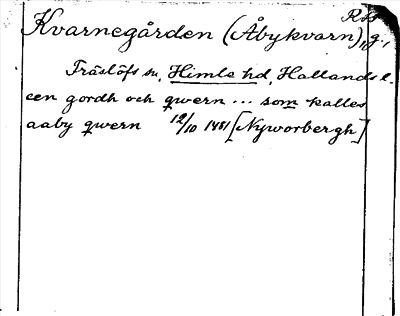 Rss
Kvarnegården (Åbykvarn), g.,
Träslöfs sn, Himle hd, Hallands l.
een gordh och qwern ... som kalles
aaby qwern 12/10 1481 [Nyworbergh]